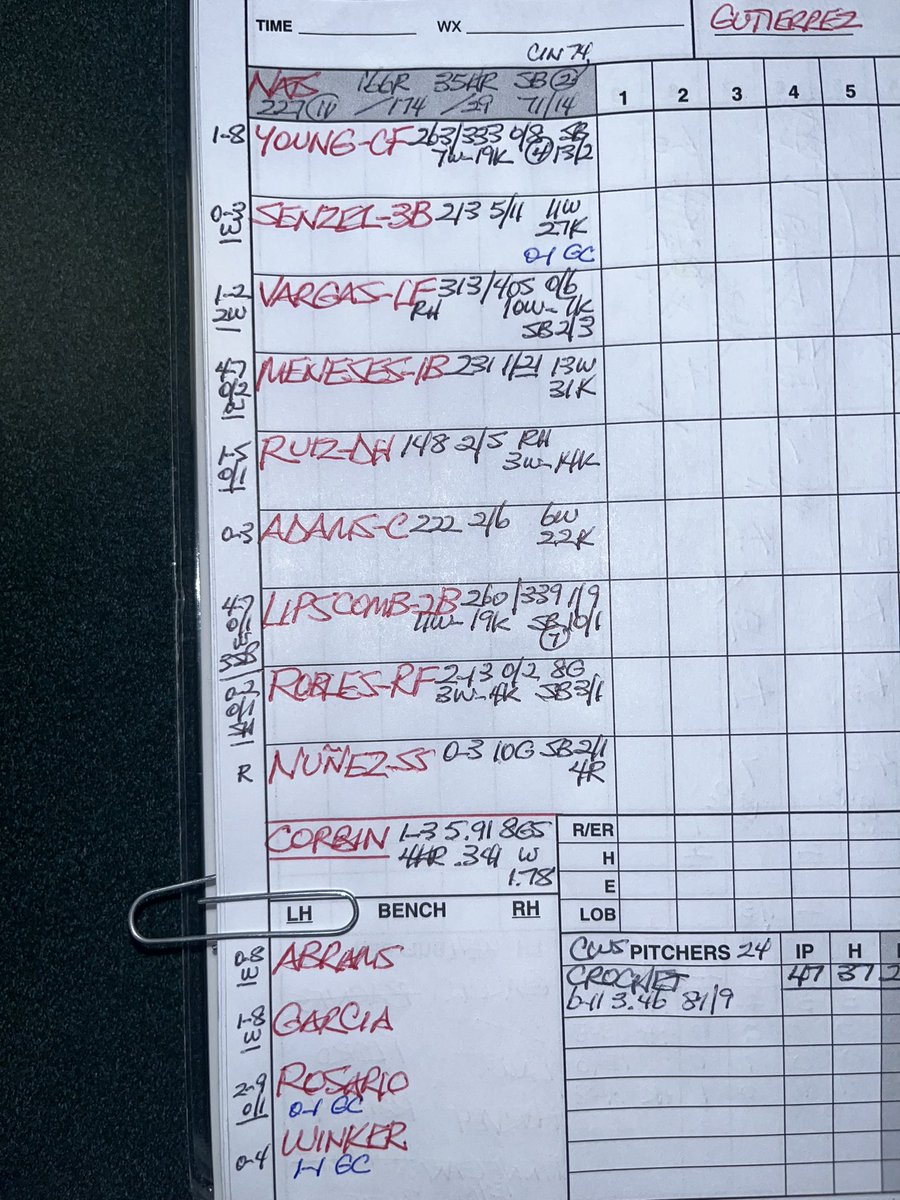 TIME WX
GUTIERREZ
CIN 74
NATS 166R 35HR SB
227 /174 /29 71/14
1 2 3 4 5
1-8 YOUNG-CF 263/333 0/8 SB
7W-19K 4 13/2
0-3 SENZEL-3B 213 5/11 11W
27K
0-1 GC
1-2 VARGAS-LF 313/405 0/6
2W RH 10W-7K
SB 2/3
4-7 MENESES-1B 231 1/21 13W
0/2 31K
1-5 RUIZ-DH 148 2/5 RH
0/1 3W-14K
0-3 ADAMS-C 222 2/6 6W
22K
4-7 LIPSCOMB-2B 260/339 1/9
0/1 11W-19K SB 10/1
3SB 7
0-2 ROBLES-RF 2-13 0/2 8G
0/1 3W-4K SB 3/1
R NUÑEZ-SS 0-3 10G SB 2/1
4R
CORBIN 1-3 5.91 8GS
4HR .341 W
1.78
R/ER
H
E
LOB
LH BENCH RH
CWS PITCHERS 24 IP H
CROCHET 47 37
6-11 3.46 81/9
0-8 ABRAMS
1-8 GARCIA
2-9 ROSARIO
0/1 0-1 GC
0-4 WINKER
1-1 GC